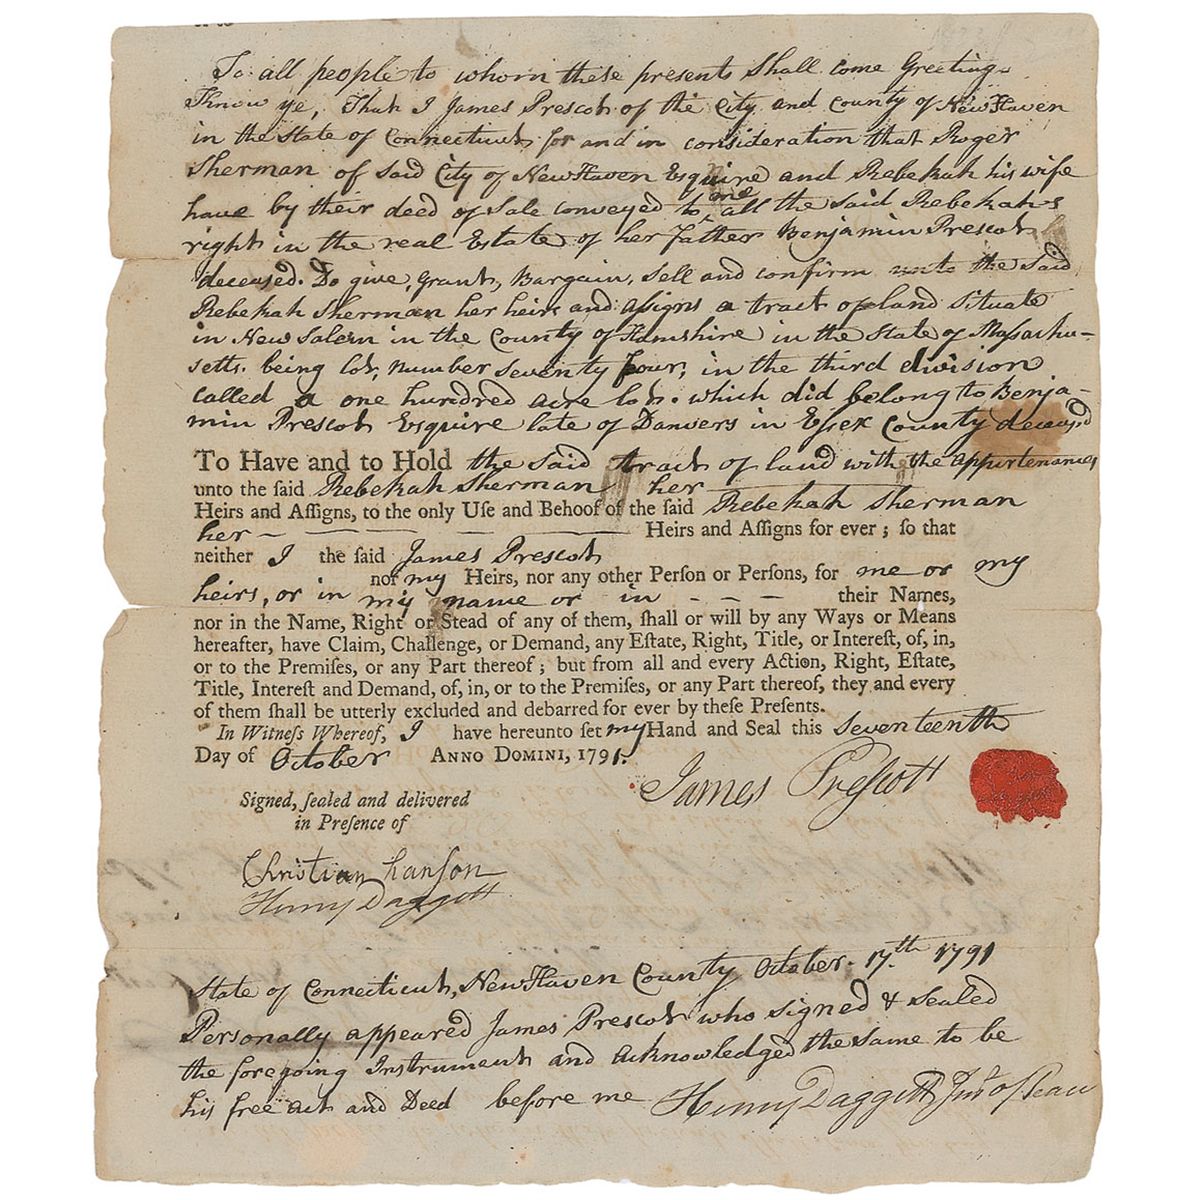 To all people to whom these presents Shall come Greeting.
Know ye, That I James Prescot of the City and County of New Haven
in the State of Connecticut for and in consideration that Roger
Sherman of said City of New Haven Esquire and Rebekah his wife
have by their deed of Sale conveyed to me all the said Rebekah's
right in the real Estate of her Father Benjamin Prescot
deceased. Do give, Grant, Bargain, Sell and confirm unto the Said
Rebekah Sherman her heirs and aſsigns a tract of land Situate
in New Salem in the County of Hamshire in the State of Maſsachu-
setts. being lot, number Seventy four, in the third division
called a one hundred acre lot. which did belong to Benja-
min Prescot Esquire late of Danvers in Eſsex County deceased
To Have and to Hold the said tract of land with the appurtenances
unto the said Rebekah Sherman her
Heirs and Aſſigns, to the only Uſe and Behoof of the said Rebekah Sherman
her Heirs and Aſſigns for ever; ſo that
neither I the ſaid James Prescot
nor my Heirs, nor any other Perſon or Perſons, for me or my
heirs, or in my name or in - - - their Names,
nor in the Name, Right or Stead of any of them, ſhall or will by any Ways or Means
hereafter, have Claim, Challenge, or Demand, any Eſtate, Right, Title, or Intereſt, of, in,
or to the Premiſes, or any Part thereof; but from all and every Action, Right, Eſtate,
Title, Intereſt and Demand, of, in, or to the Premiſes, or any Part thereof, they and every
of them ſhall be utterly excluded and debarred for ever by theſe Preſents.
In Witneſs Whereof, I have hereunto ſet my Hand and Seal this Seventeenth
Day of October ANNO DOMINI, 1791.
James Preſcott
Signed, ſealed and delivered
in Preſence of
Christian Hanſon
Henry Daggett
State of Connecticut, New Haven County October. 17.th 1791
Personally appeared James Prescot who signed & Sealed
the foregoing Instrument and acknowledged the same to be
his free act and Deed before me Henry Daggett Jus of Peace